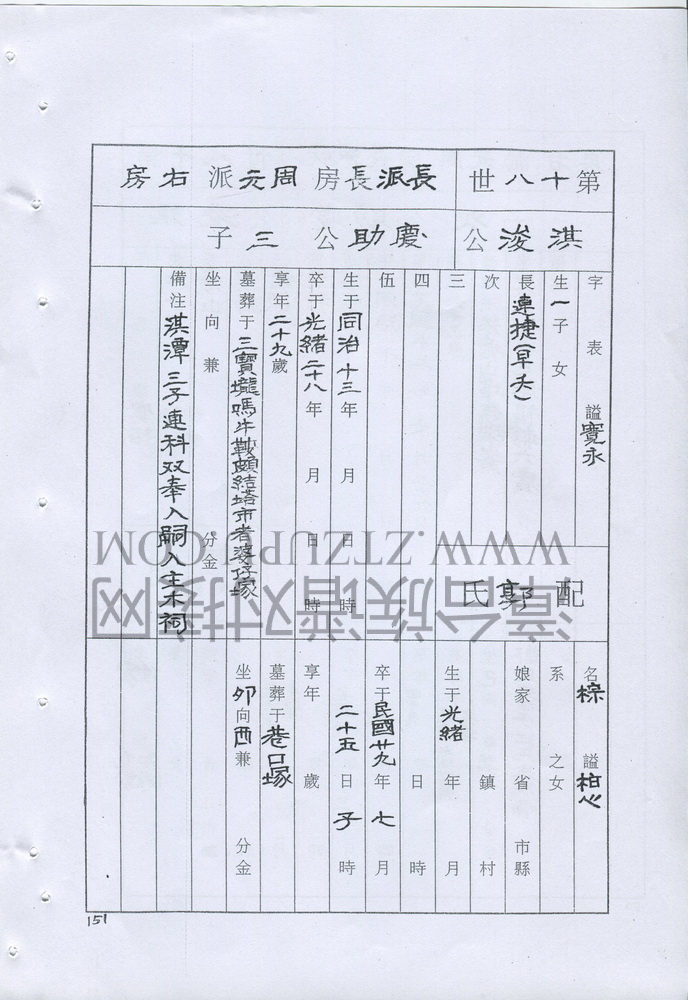 第十八世
長派長房周元派右房
淇浚公
慶助公三子
字 表 諡寬永
生一子 女
長連捷(早夭)
次
三
四
伍
生于同治十三年 月 日 時
卒于光緒二十八年 月 日 時
享年二十九歲
墓葬于三寶壠嗎牛鞍頗結塔市老婆仔塚
坐 向 兼 分金
備注淇潭三子連科双奉入嗣入主木祠
配郭氏
名棕 諡柏心
系 之女
娘家 省 市縣
鎮 村
生于光緒 年 月
日 時
卒于民國廿九年七月
二十五日子時
享年 歲
墓葬于巷口塚
坐卯向酉兼 分金
151
漳台族谱对接网
WWW.ZTZUPU.COM